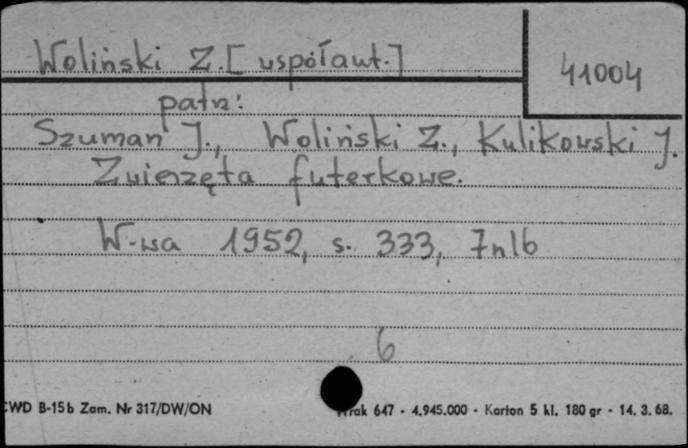 Woliński Z. [współaut.]
41004
patrz:
Szuman J., Woliński Z., Kulikowski J.
Zwierzęta futerkowe.
W-wa 1952, s. 333, 7nlb
6
CWD B-15b Zam. Nr 317/DW/ON
647 - 4.945.000 - Karton 5 kl. 180 gr - 14. 3. 68.